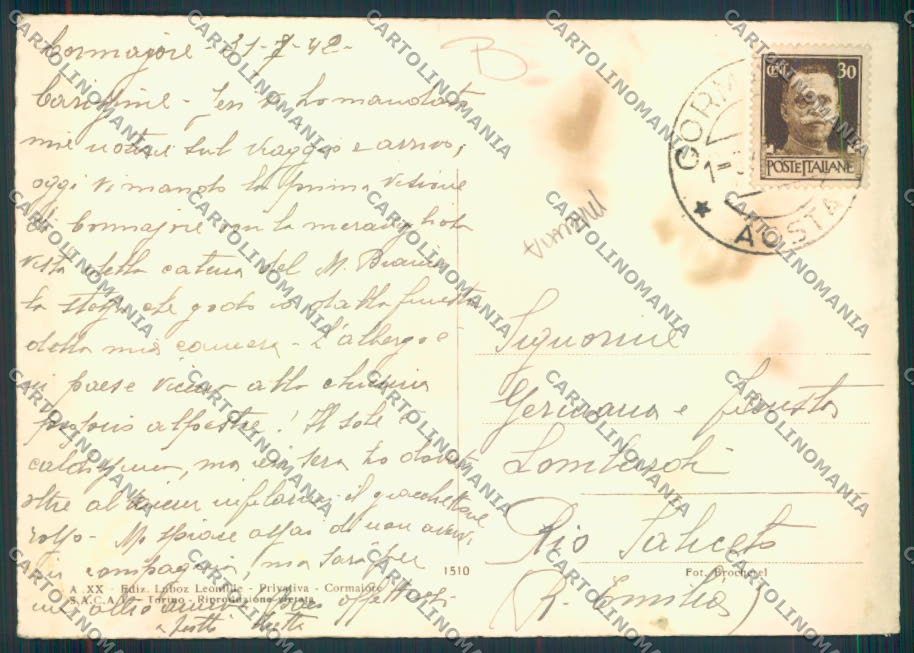 Cormajore - 31-7-42 -
Carissime - Ieri vi ho mandato
mie notizie sul viaggio e arrivo,
oggi vi mando la prima visione
di Cormajore con la meravigliosa
vista della catena del M. Bianco
la stessa che godo io dalla finestra
della mia camera - L'albergo è
in paese vicino alla chiesina
alpestre! Il sole è
caldissimo, ma ieri sera ho dovuto
oltre al infilarmi il giacchettone
rosso - Mi spiace assai di non avervi
in compagnia, ma sarà per
un altro anno affettuosi
a tutti
B
CORM
AOSTA
CENT. 30
POSTE ITALIANE
Signorine
Germana e Fausta
Lombardi
Rio Saliceto
(R. Emilia)
1510
Fot. Brocherel
A. XX - Ediz. Luboz Leonille - Privativa - Cormaiore
S.A.C.A.T. - Torino - Riproduzione vietata
CARTOLINOMANIA